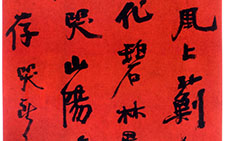 風上薊
化碧林
哭山陽
存哭